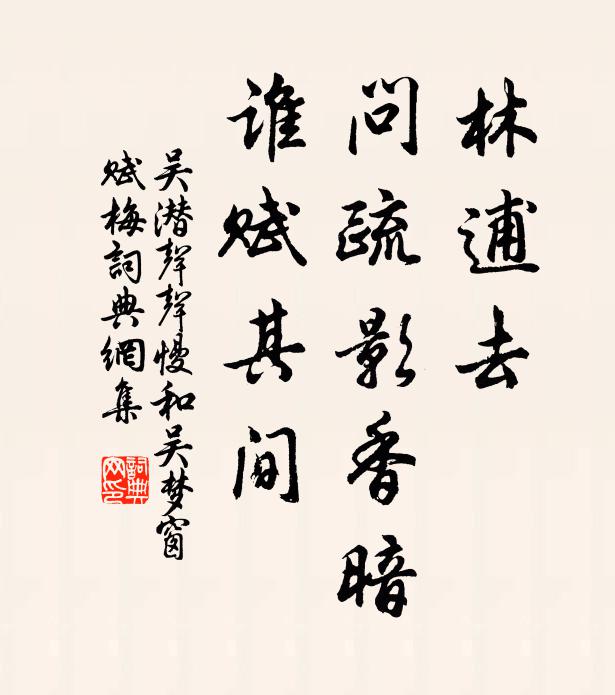 林逋去
问疏影香暗
谁赋其间
吴潜声声慢和吴梦窗
赋梅詞典網集
詞典
网印